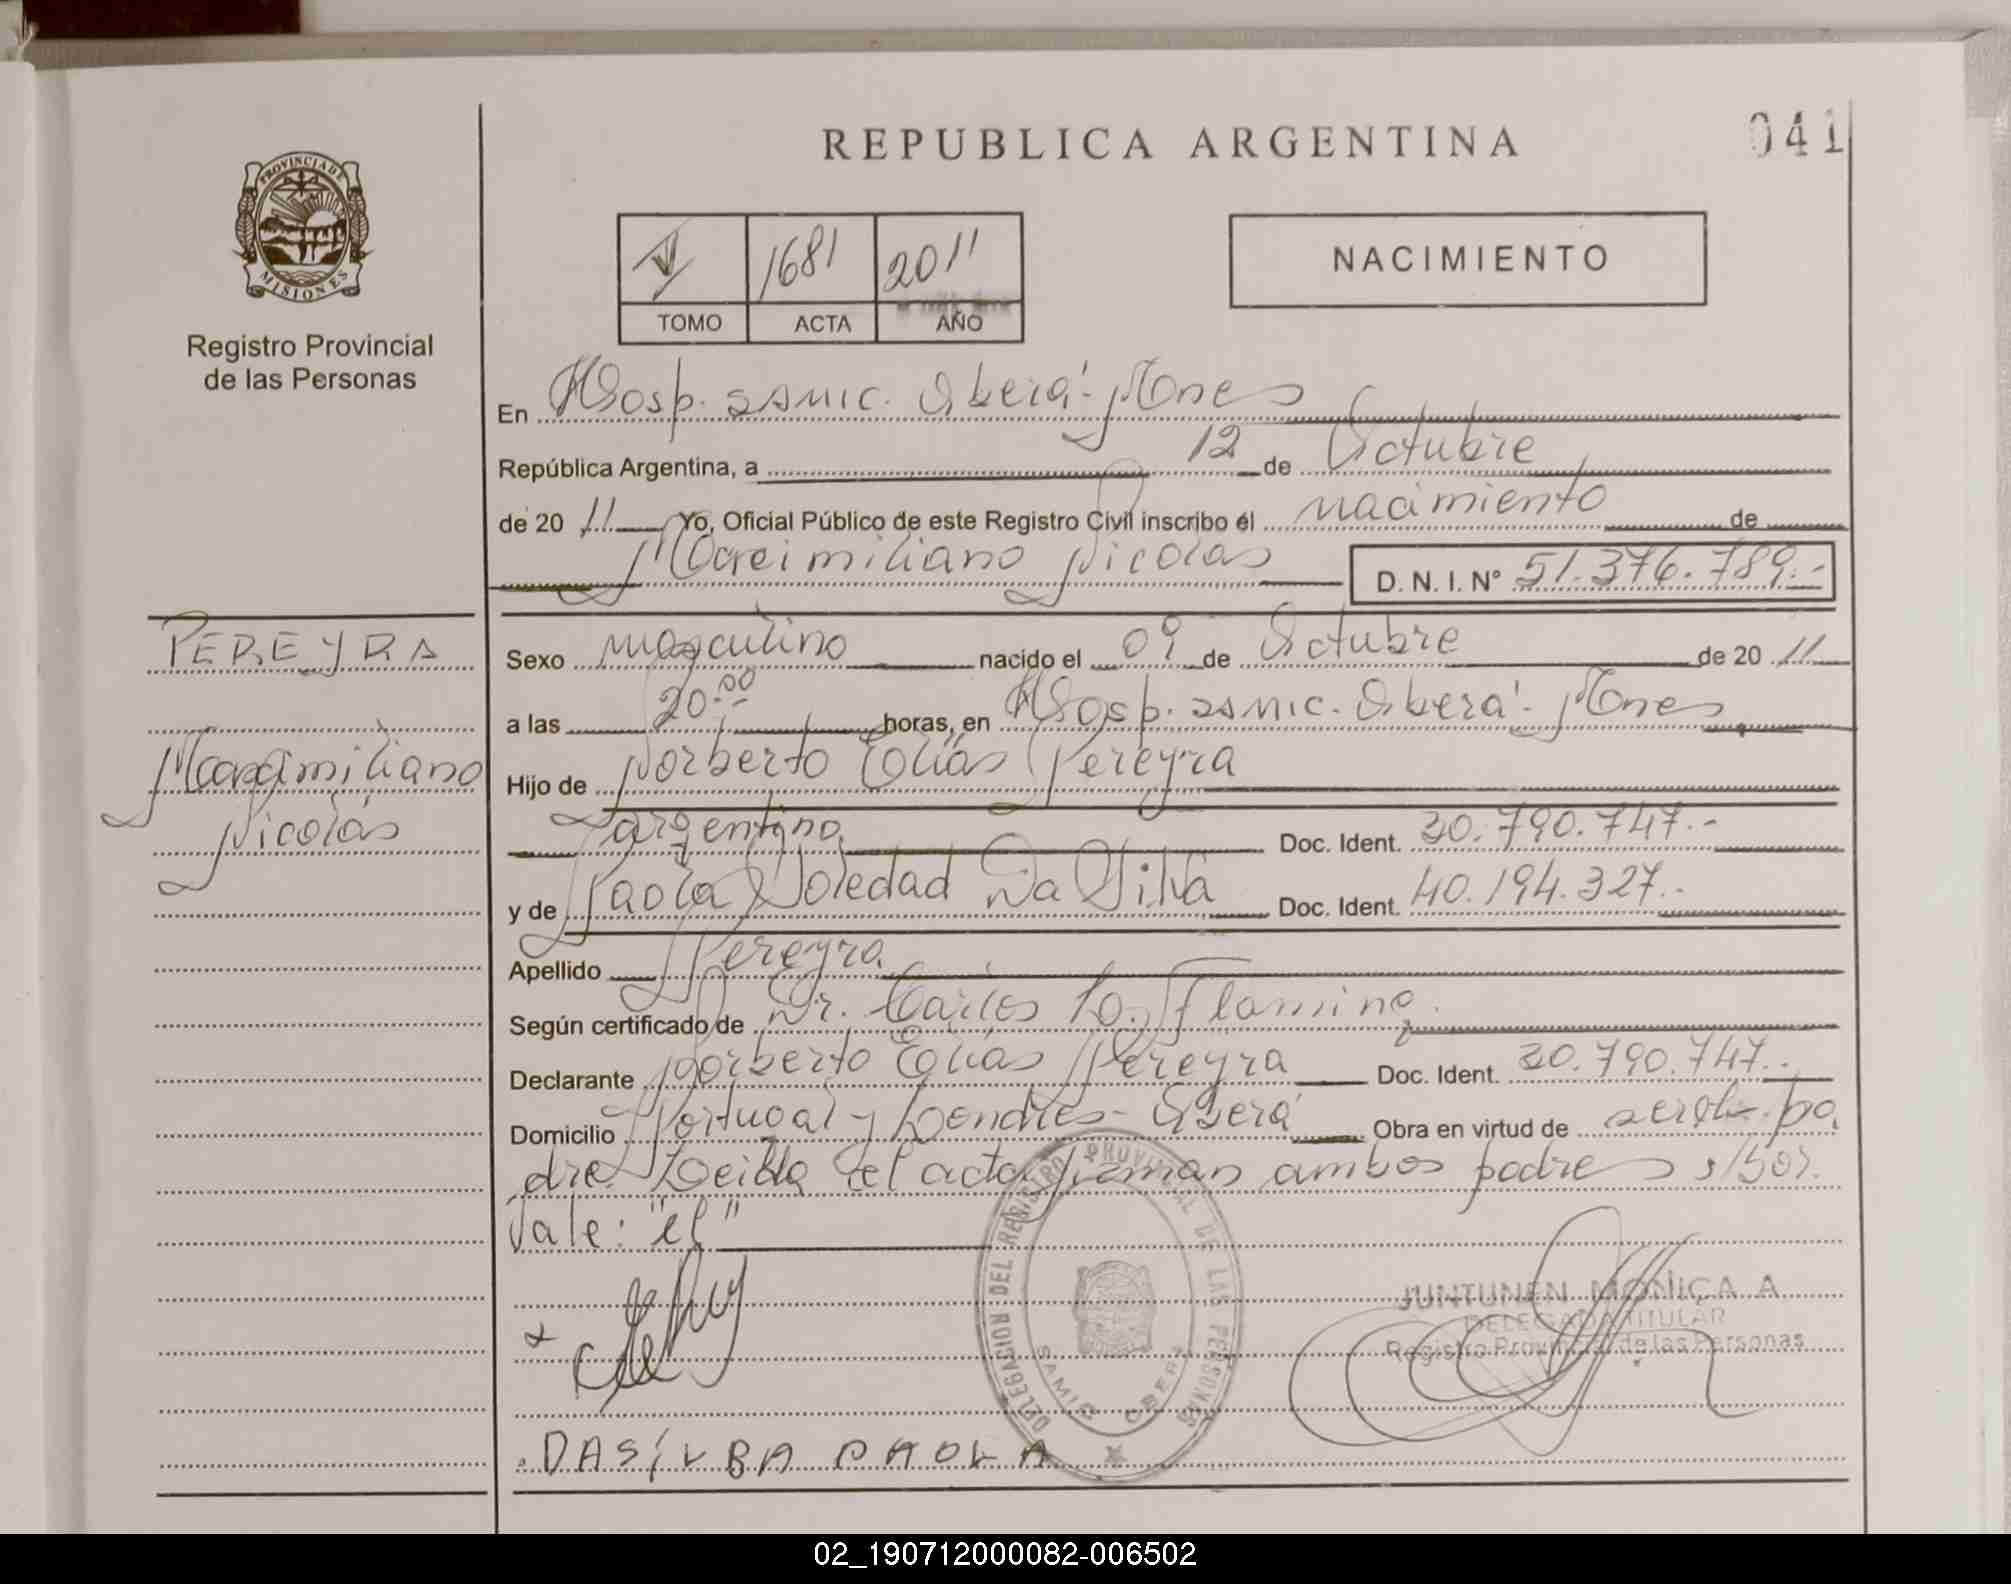 REPUBLICA ARGENTINA
041
PROVINCIA DE
MISIONES
Registro Provincial
de las Personas
V 1681 2011
TOMO ACTA AÑO
NACIMIENTO
En Hosp. SAMIC. Oberá - Mnes
República Argentina, a 12 de Octubre
de 20 11 Yo, Oficial Público de este Registro Civil inscribo el nacimiento de
Maximiliano Nicolás D. N. I. N° 51.376.789.-
PEREYRA
Maximiliano
Nicolás
Sexo masculino nacido el 09 de Octubre de 20 11
a las 20:00 horas, en Hosp. SAMIC. Oberá - Mnes
Hijo de Norberto Elías Pereyra
argentino Doc. Ident. 30.790.747.-
y de Paola Soledad Da Silva Doc. Ident. 40.194.327.-
Apellido Pereyra
Según certificado de Dr. Carlos Flamin
Declarante Norberto Elías Pereyra Doc. Ident. 30.790.747.-
Domicilio Portugal y Londres - Oberá Obra en virtud de ser el pa
dre. Leída el acta firman ambos padres
Vale: "el"
DELEGACION DEL REGISTRO PROVINCIAL DE LAS PERSONAS
SAMIC OBERA
JUNTUNEN MONICA A
DELEGADA TITULAR
Registro Provincial de las Personas
DASÍLBA PAOLA
02_190712000082-006502